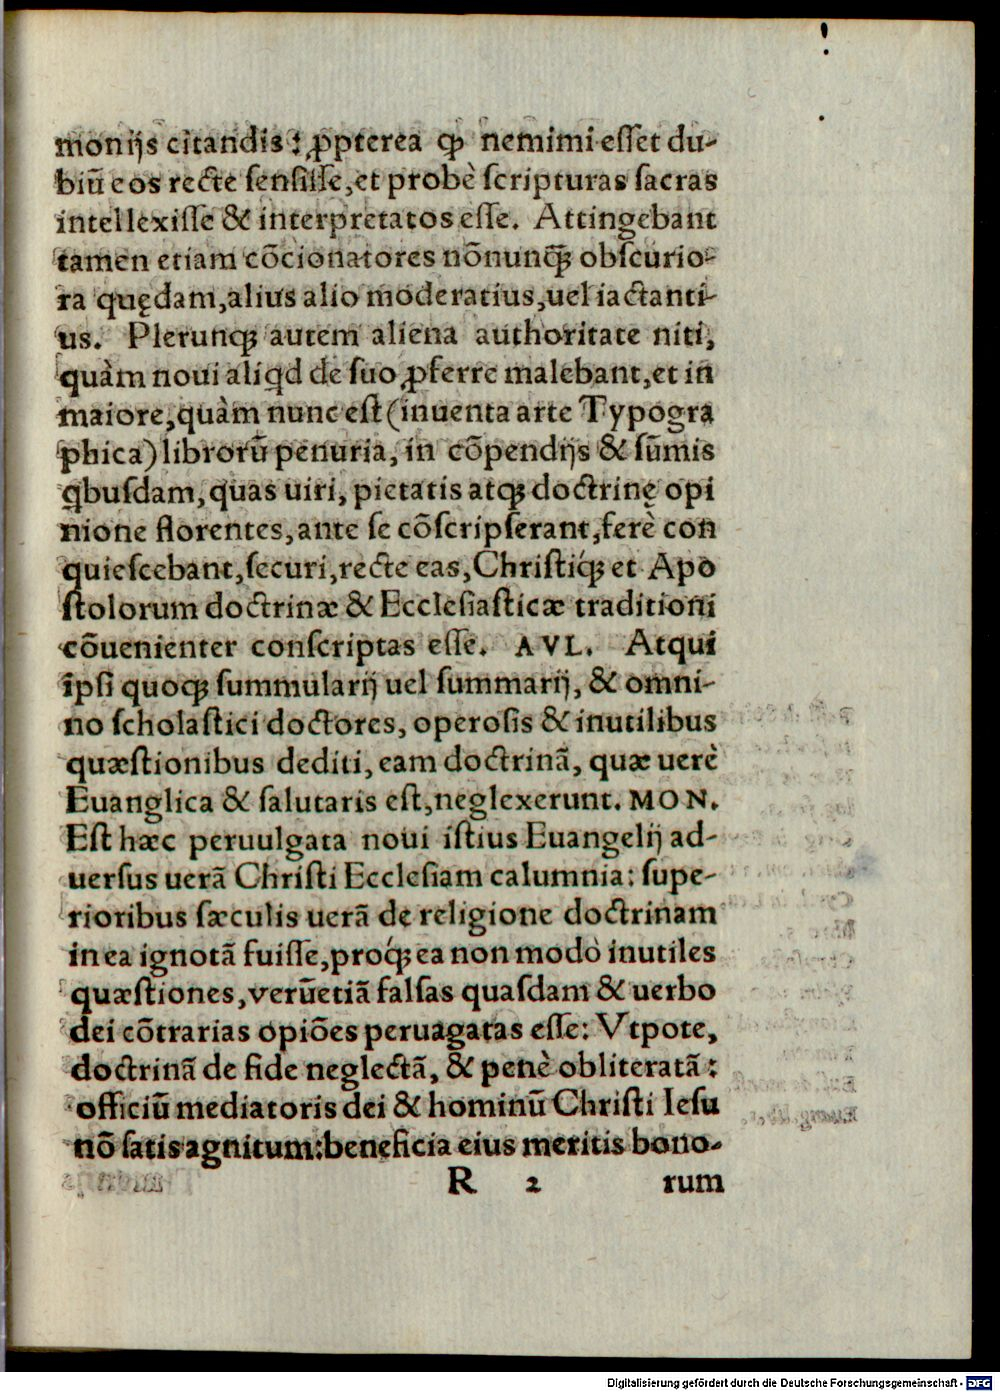 monijs citandis: ꝓpterea ꝙ nemimi esset du-
biũ eos recte sensisse, et probè scripturas sacras
intellexisse & interpretatos esse. Attingebant
tamen etiam cõcionatores nõnunꝗ̃ obscurio-
ra quędam, alius alio moderatius, uel iactanti-
us. Plerunqꝫ autem aliena authoritate niti,
quàm noui aliꝗd de suo ꝓferre malebant, et in
maiore, quàm nunc est (inuenta arte Typogra
phica) librorũ penuria, in cõpendijs & sũmis
ꝗbusdam, quas uiri, pietatis atqꝫ doctrinę opi
nione florentes, ante se cõscripserant, ferè con
quiescebant, securi, recte eas, Christiqꝫ́ et Apo
stolorum doctrinæ & Ecclesiasticæ traditioni
cõuenienter conscriptas esse. AVL. Atqui
ipsi quoqꝫ summularij uel summarij, & omni-
no scholastici doctores, operosis & inutilibus
quæstionibus dediti, eam doctrinã, quæ uerè
Euanglica & salutaris est, neglexerunt. MON.
Est hæc peruulgata noui istius Euangelij ad-
uersus uerã Christi Ecclesiam calumnia: supe-
rioribus sæculis uerã de religione doctrinam
in ea ignotã fuisse, proqꝫ́ ea non modo inutiles
quæstiones, verũetiã falsas quasdam & uerbo
dei cõtrarias opiões peruagatas esse: Vtpote,
doctrinã de fide neglectã, & penè obliteratã:
officiũ mediatoris dei & hominũ Christi Iesu
nõ satis agnitum: beneficia eius meritis bono-
R 2 rum
Digitalisierung gefördert durch die Deutsche Forschungsgemeinschaft - DFG